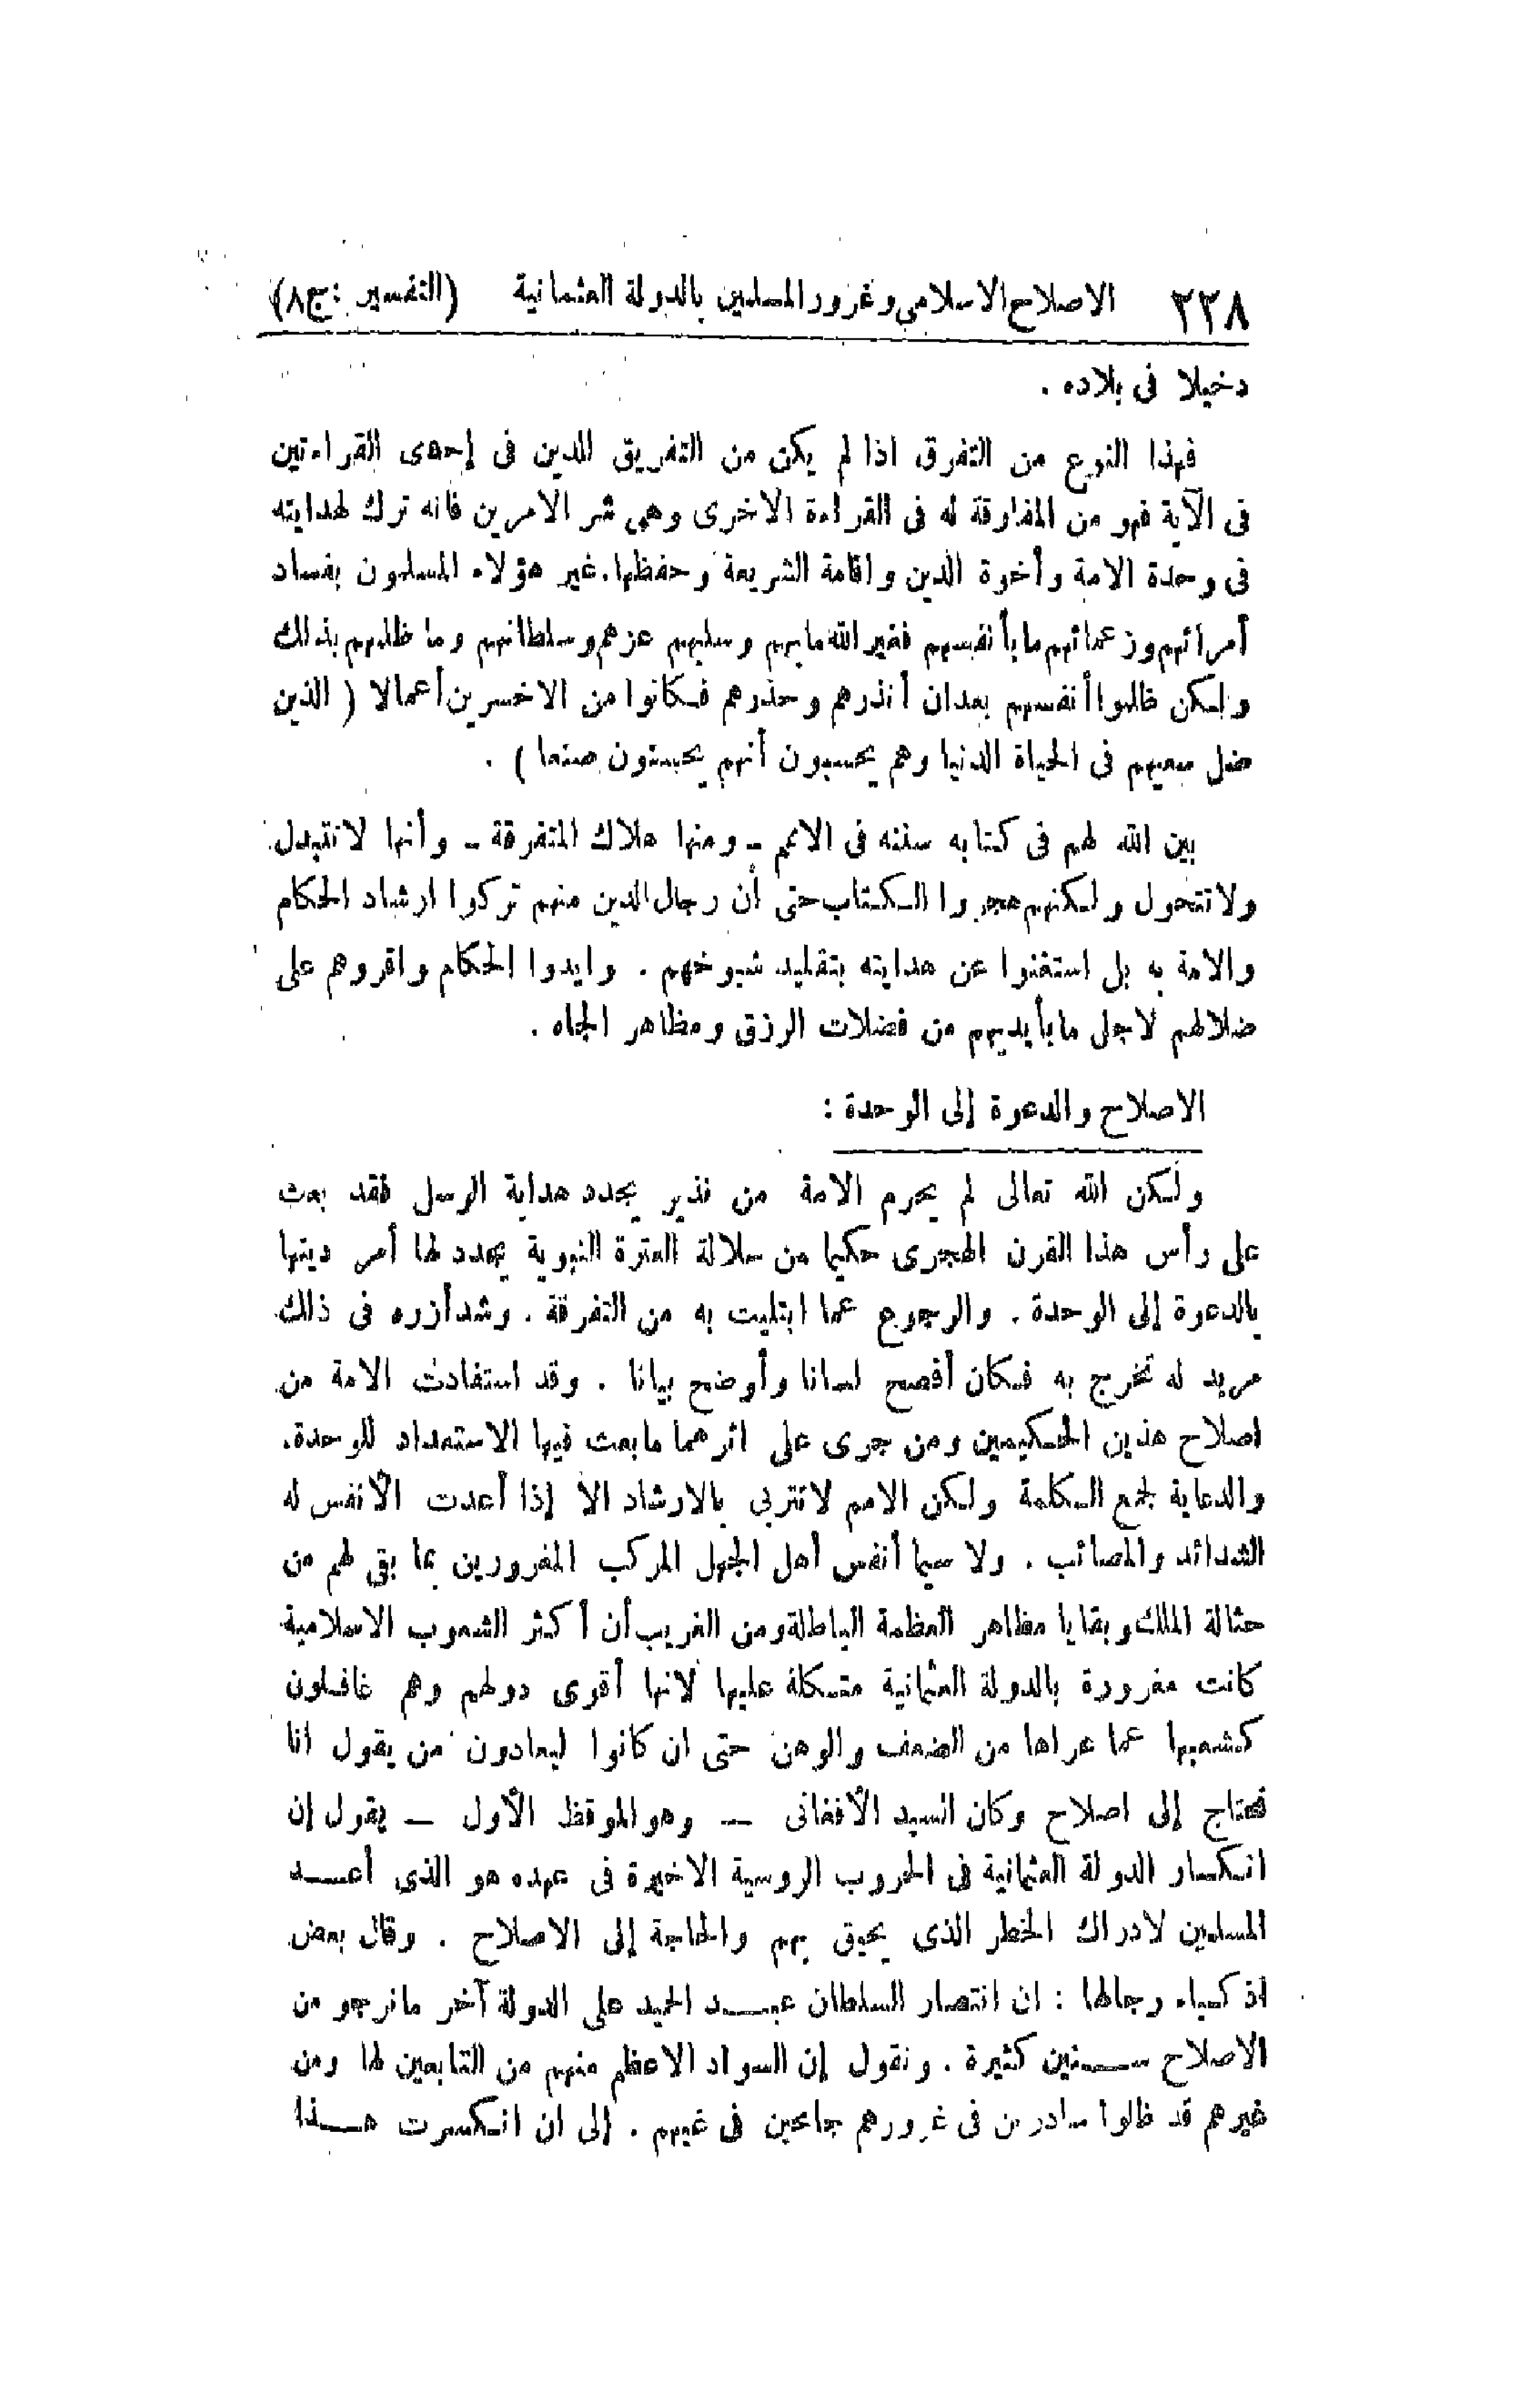 ٢٢٨ الاصلاح الاسلامى وغرور المسلمين بالدولة العثمانية (التفسير : ج٨)
دخيلا فى بلاده .
فهذا النوع من التفرق اذا لم يكن من التفريق للدين فى إحدى القراءتين
فى الآية فهو من المفارقة له فى القراءة الاخرى وهى شر الامرين فانه ترك لهدايته
فى وحدة الامة وأخوة الدين واقامة الشريعة وحفظها. غير هؤلاء المسلمون بفساد
أمرائهم وزعمائهم ما بأنفسهم فغير الله ما بهم وسلبهم عزهم وسلطانهم وما ظلمهم بذلك
ولكن ظلموا أنفسهم بعد ان أنذرهم وحذرهم فكانوا من الاخسرين أعمالا ( الذين
ضل سعيهم فى الحياة الدنيا وهم يحسبون أنهم يحسنون صنعا ) .
بين الله لهم فى كتابه سننه فى الامم ـ ومنها هلاك المتفرقة ـ وأنها لا تتبدل
ولا تتحول ولكنهم هجروا الكتاب حتى أن رجال الدين منهم تركوا ارشاد الحكام
والامة به بل استغنوا عن هدايته بتقليد شيوخهم . وايدوا الحكام واقروهم على
ضلالهم لاجل ما بأيديهم من فضلات الرزق ومظاهر الجاه .
الاصلاح والدعوة إلى الوحدة :
ولكن الله تعالى لم يحرم الامة من نذير يجدد هداية الرسل فقد بعث
على رأس هذا القرن الهجرى حكيما من سلالة العترة النبوية يجدد لها أمر دينها
بالدعوة إلى الوحدة . والرجوع عما ابتليت به من التفرقة . وشد أزره فى ذلك
مريد له تخرج به فكان أفصح لسانا وأوضح بيانا . وقد استفادت الامة من
اصلاح هذين الحكيمين ومن جرى على اثرهما ما بعث فيها الاستعداد للوحدة.
والدعاية لجمع الكلمة ولكن الامم لا تتربى بالارشاد الا إذا أعدت الأنفس له
الشدائد والمصائب . ولا سيما أنفس أهل الجهل المركب المغرورين بما بقى لهم من
حثالة الملك وبقايا مظاهر العظمة الباطلة ومن الغريب أن أكثر الشعوب الاسلامية
كانت مغرورة بالدولة العثمانية متكلة عليها لانها أقوى دولهم وهم غافلون
كشعبها عما عراها من الضعف والوهن حتى ان كانوا ليعادون من يقول انا
نحتاج إلى اصلاح وكان السيد الأفغانى ـ وهو الموقظ الأول ـ يقول إن
انكسار الدولة العثمانية فى الحروب الروسية الاخيرة فى عهده هو الذى أعد
المسلمين لادراك الخطر الذى يحيق بهم والحاجة إلى الاصلاح . وقال بعض
اذكياء رجالها : ان انتصار السلطان عبد الحميد على الدولة آخر ما نرجو من
الاصلاح سنين كثيرة . ونقول إن السواد الاعظم منهم من التابعين لها ومن
غيرهم قد ظلوا سادرين فى غرورهم جامحين فى غيهم . إلى ان انكسرت هذا